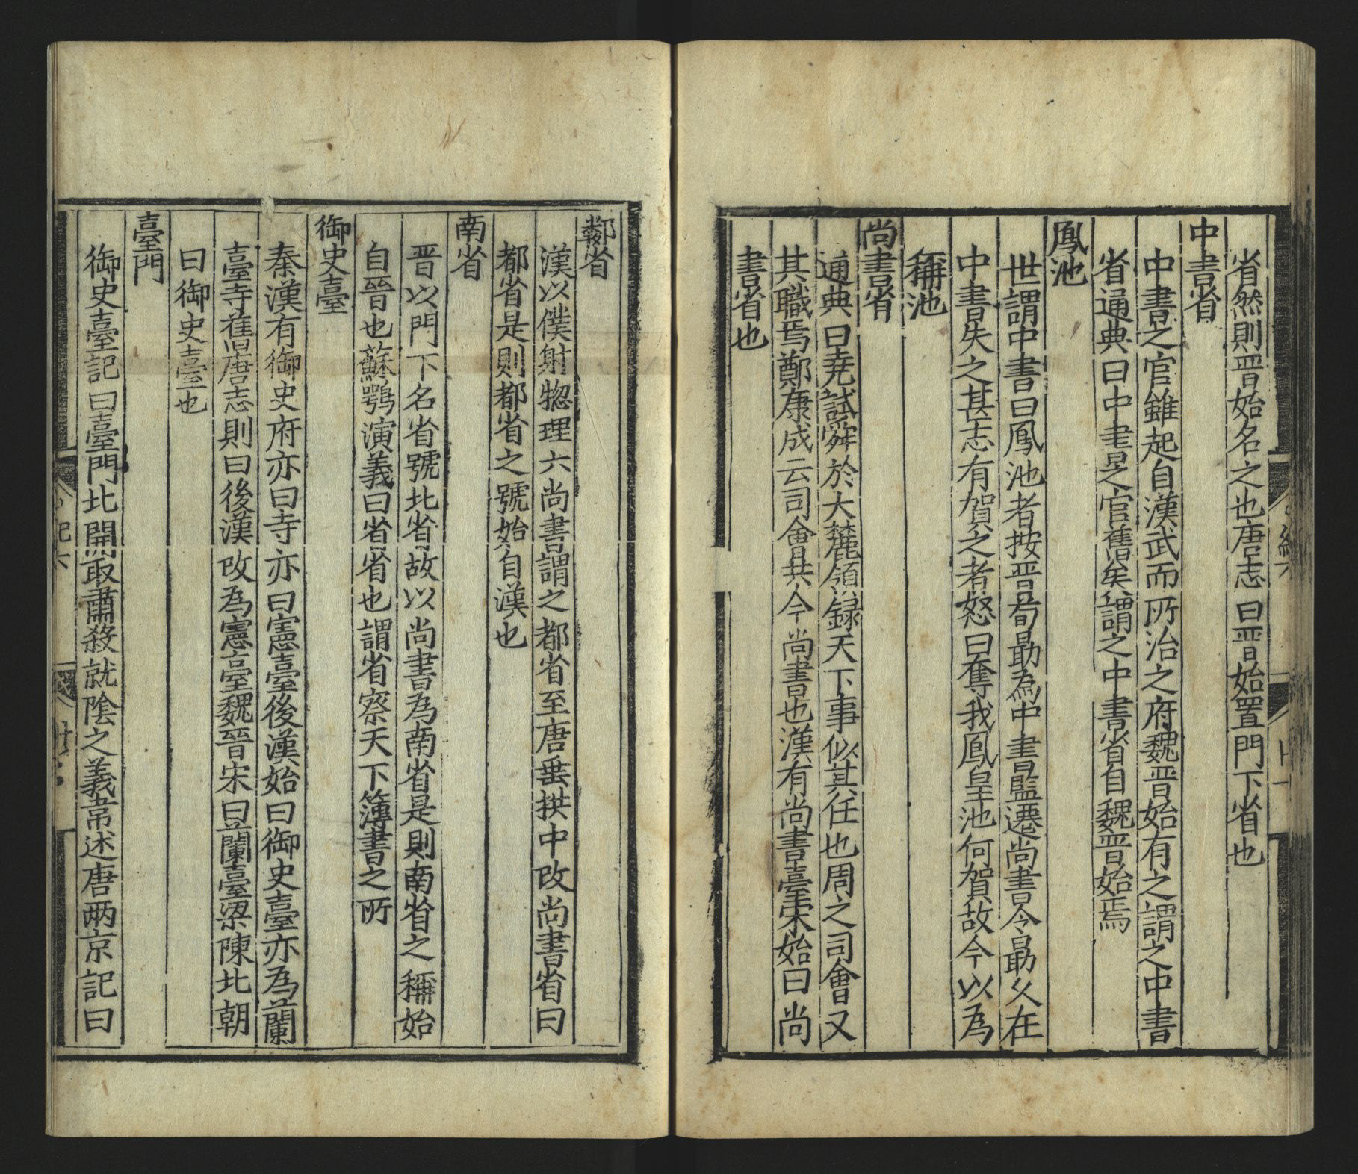 省然則晋始名之也唐志曰晋始置門下省也
中書省
中書之官雖起自漢武而所治之府魏晋始有之謂之中書
省通典曰中書是官舊矣謂之中書省自魏晋始焉
鳳池
世謂中書曰鳳池者按晋荀勗為中書監遷尚書令勗久在
中書失之甚志有賀之者怒曰奪我鳳皇池何賀故今以為
稱池
尚書省
通典曰尭試舜於大麓領録天下事似其任也周之司會又
其職焉鄭康成云司會共今尚書也漢有尚書臺宋始曰尚
書省也
都省
漢以僕射惣理六尚書謂之都省至唐垂拱中改尚書省曰
都省是則都省之號始自漢也
南省
晋以門下名省號北省故以尚書為南省是則南省之稱始
自晉也蘇鶚演義曰省省也謂省察天下簿書之所
御史臺
秦漢有御史府亦曰寺亦曰憲臺後漢始曰御史臺亦為蘭
臺寺舊唐志則曰後漢改為憲臺魏晋宋曰蘭臺梁陳北朝
曰御史臺也
臺門
御史臺記曰臺門北開取肅殺就陰之義韋述唐兩京記曰